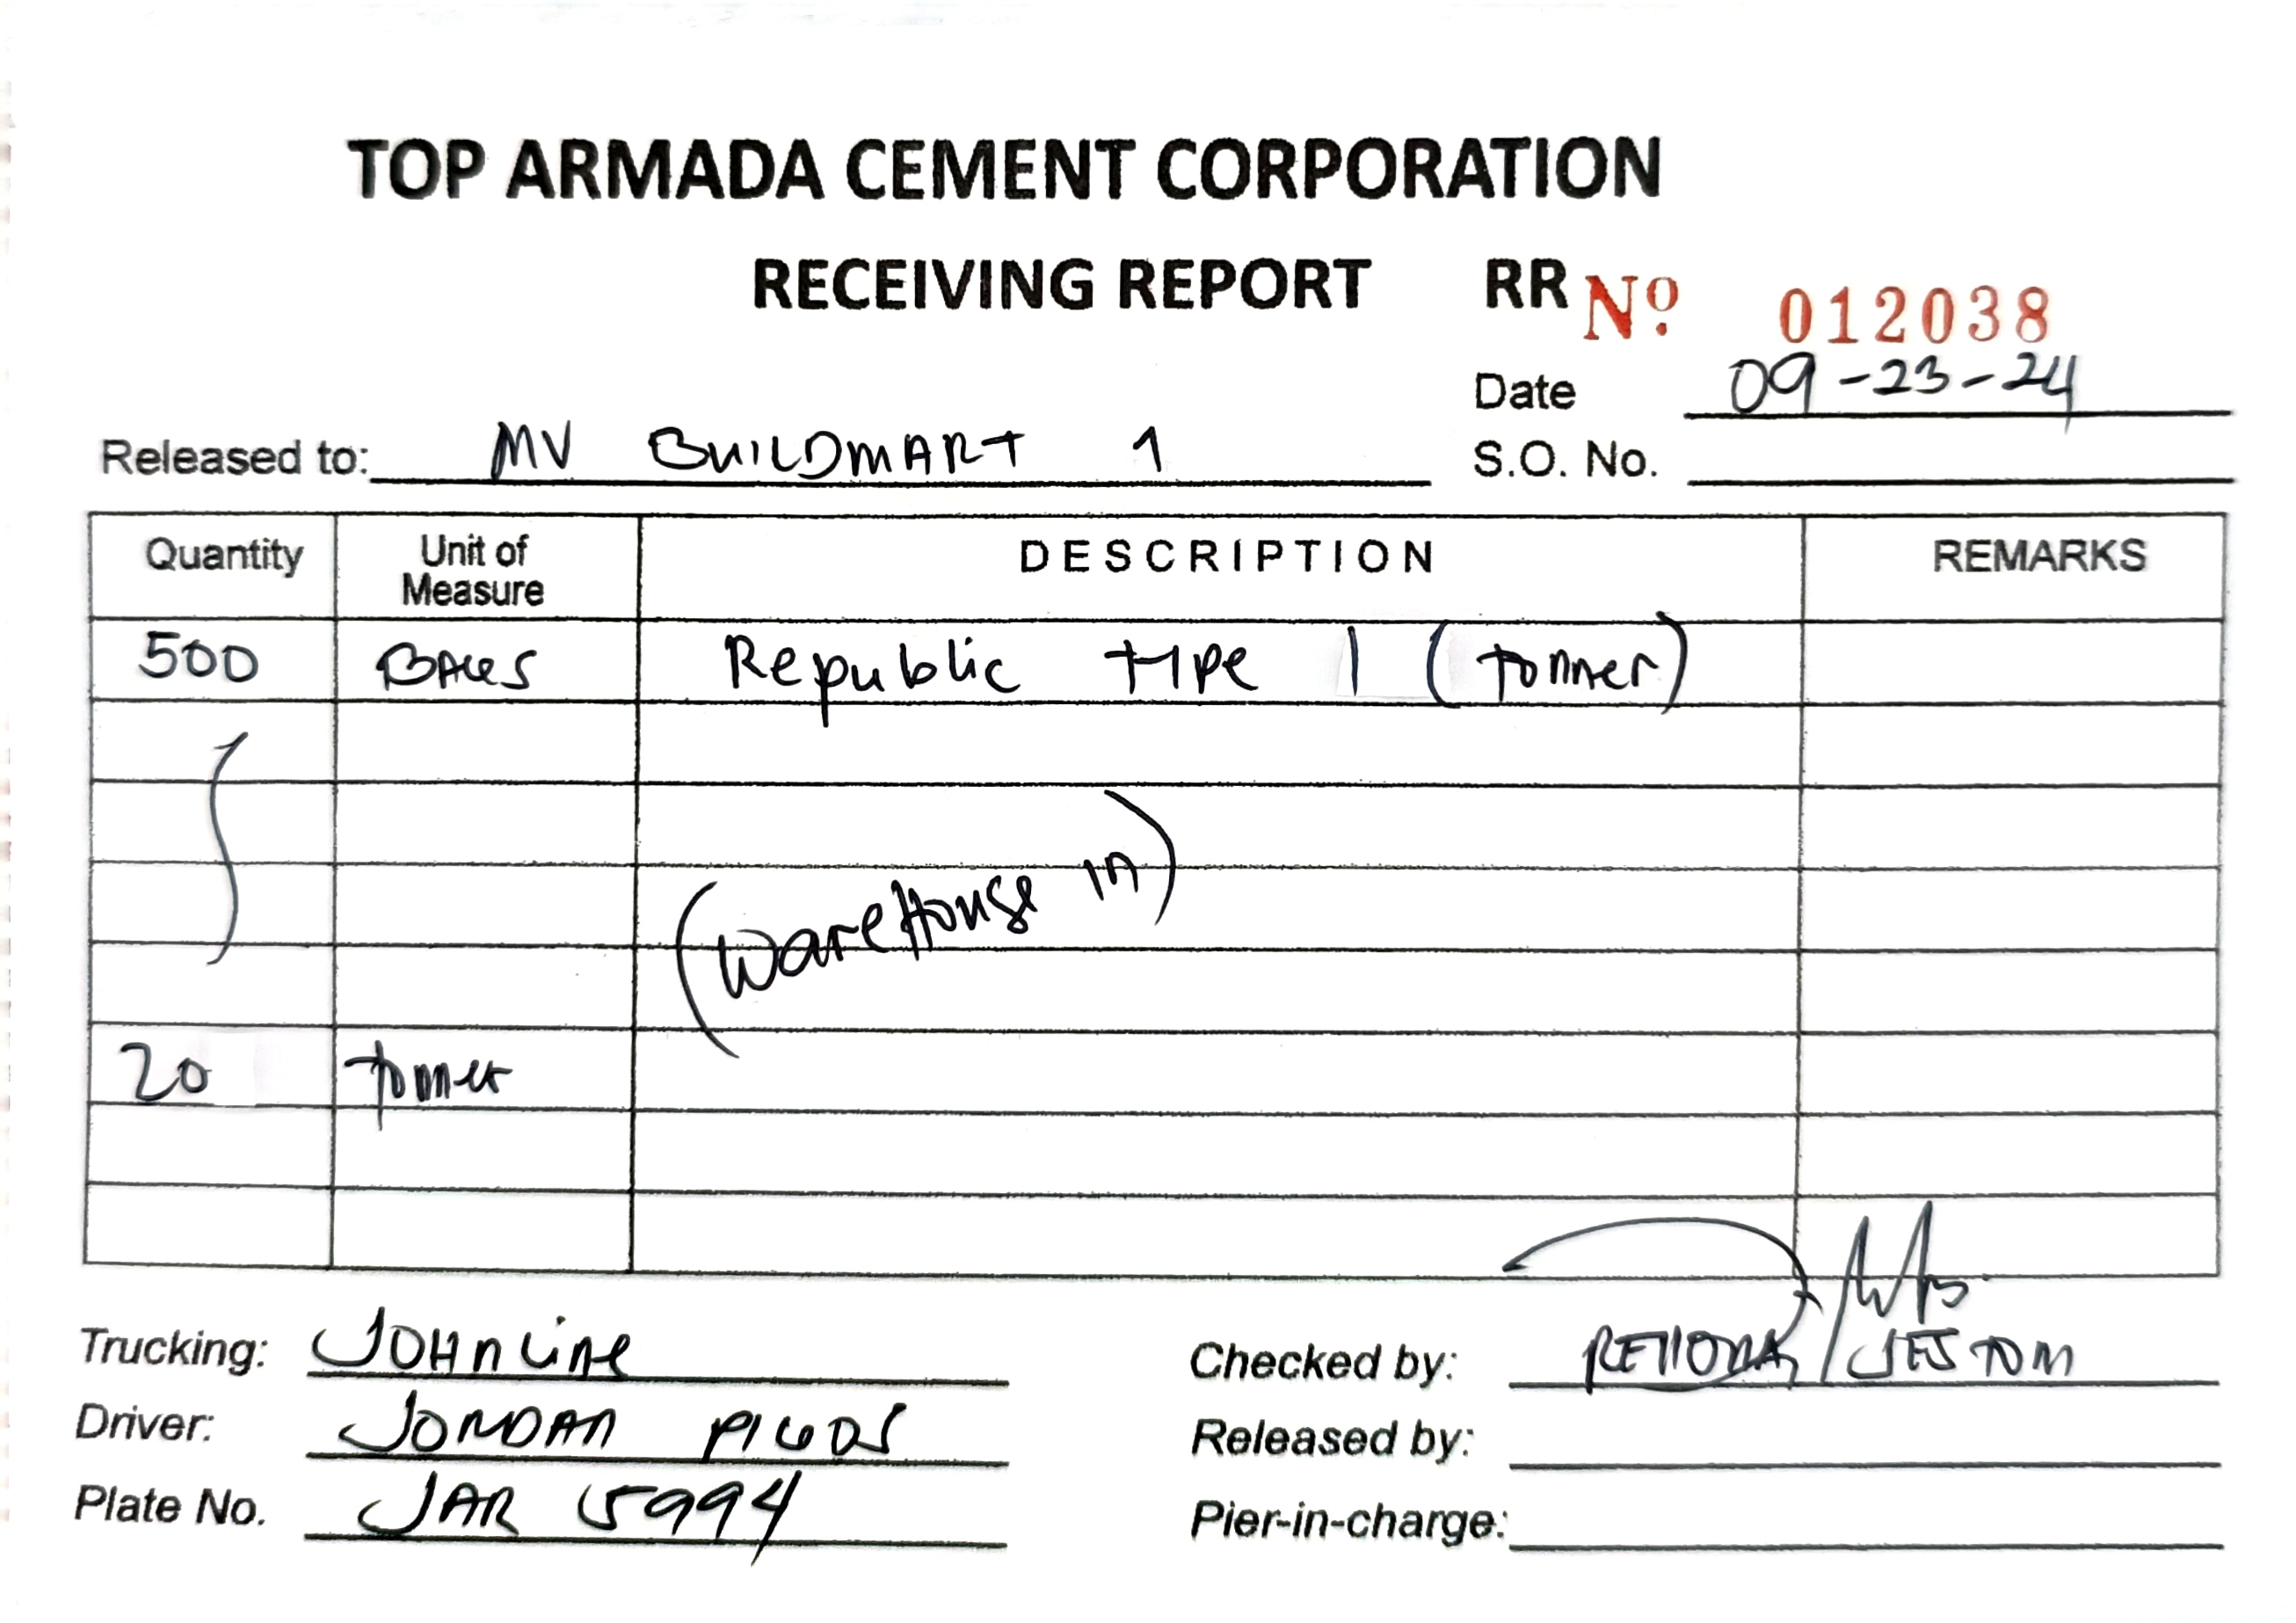 TOP ARMADA CEMENT CORPORATION
RECEIVING REPORT RR Nº 012038
Date 09-23-24
Released to: MV BUILDMART 1 S.O. No.
Quantity Unit of Measure DESCRIPTION REMARKS
500 BAGS Republic type 1 (tonner)
(wareHouse in)
20 tonner
Trucking: JOHNLINE Checked by: JESTOM
Driver: JORDAN PIGOS Released by:
Plate No. JAR 5994 Pier-in-charge: